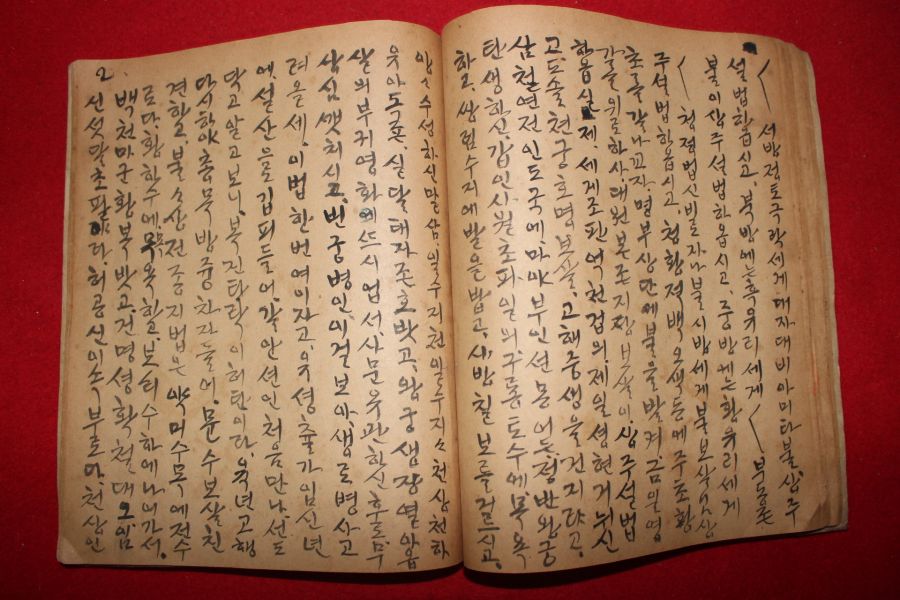 서방정토극락세계대자대비아미타불, 상주
설법하옵시고, 북방에는흑유리세게 부동존
불이상주설법하옵시고, 중방에는황유리세게
청정법신비로자나불시방세게불보살 상
주석법하옵시고, 청황적백오색등에주초황
초를 갈나꼬자, 명부상단에불을발켜, 금일영
가를위로하사, 대원본존지장보살이, 상주설법
하옵실제, 세게조판억천겁의, 제일성현거뉘신
고, 도솔천궁호명보살, 고해중생을건지랴고,
삼철연전인도국에마야부인선몽어든, 정반왕궁
탄생하신, 갑인사월초파일의구룡토수에목욕
하고, 쌍점수지에발을밥고, 사방칠보를거르시고,
앙수성하신말삼, 일수지천일수지지천상천하
유아도존, 실달태자존호밧고, 왕궁생장열아홉
살의부귀영화에쓰시업서, 사문유관하신후, 무
상심깻치시고, 빈궁병인이걸보아, 생로병사고
려올세, 이법한번여이자고, 유성출가임신년
에, 설산으로깁피들어, 갈안선인처음만나선도
닥고알고보니, 북진타락이허탄이라, 육년고행
다시하야, 총목방중차자들어, 문수보살친
견하고, 불상전중지법은약머수목에전수
로다, 황하수에목욕하고, 보리수하에나니가서,
백천마군황복밧고, 건명성확철대오임
신섯달초팔야라, 허공신이소부로다, 천상인
2